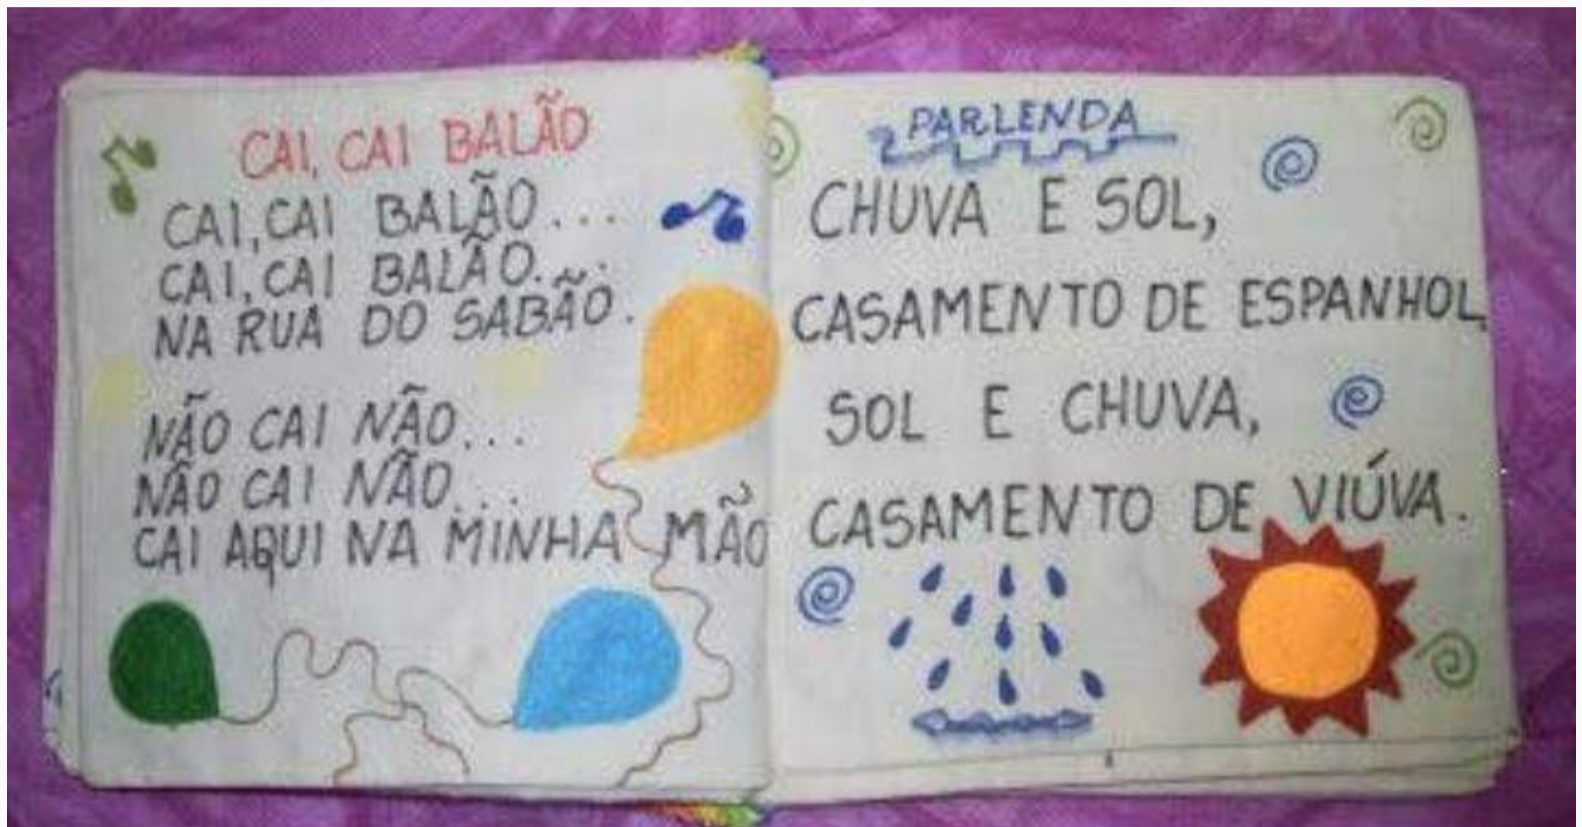 CAI, CAI BALÃO
CAI, CAI BALÃO...
CAI, CAI BALÃO...
NA RUA DO SABÃO.
NÃO CAI NÃO...
NÃO CAI NÃO...
CAI AQUI NA MINHA MÃO
PARLENDA
CHUVA E SOL,
CASAMENTO DE ESPANHOL
SOL E CHUVA,
CASAMENTO DE VIÚVA.